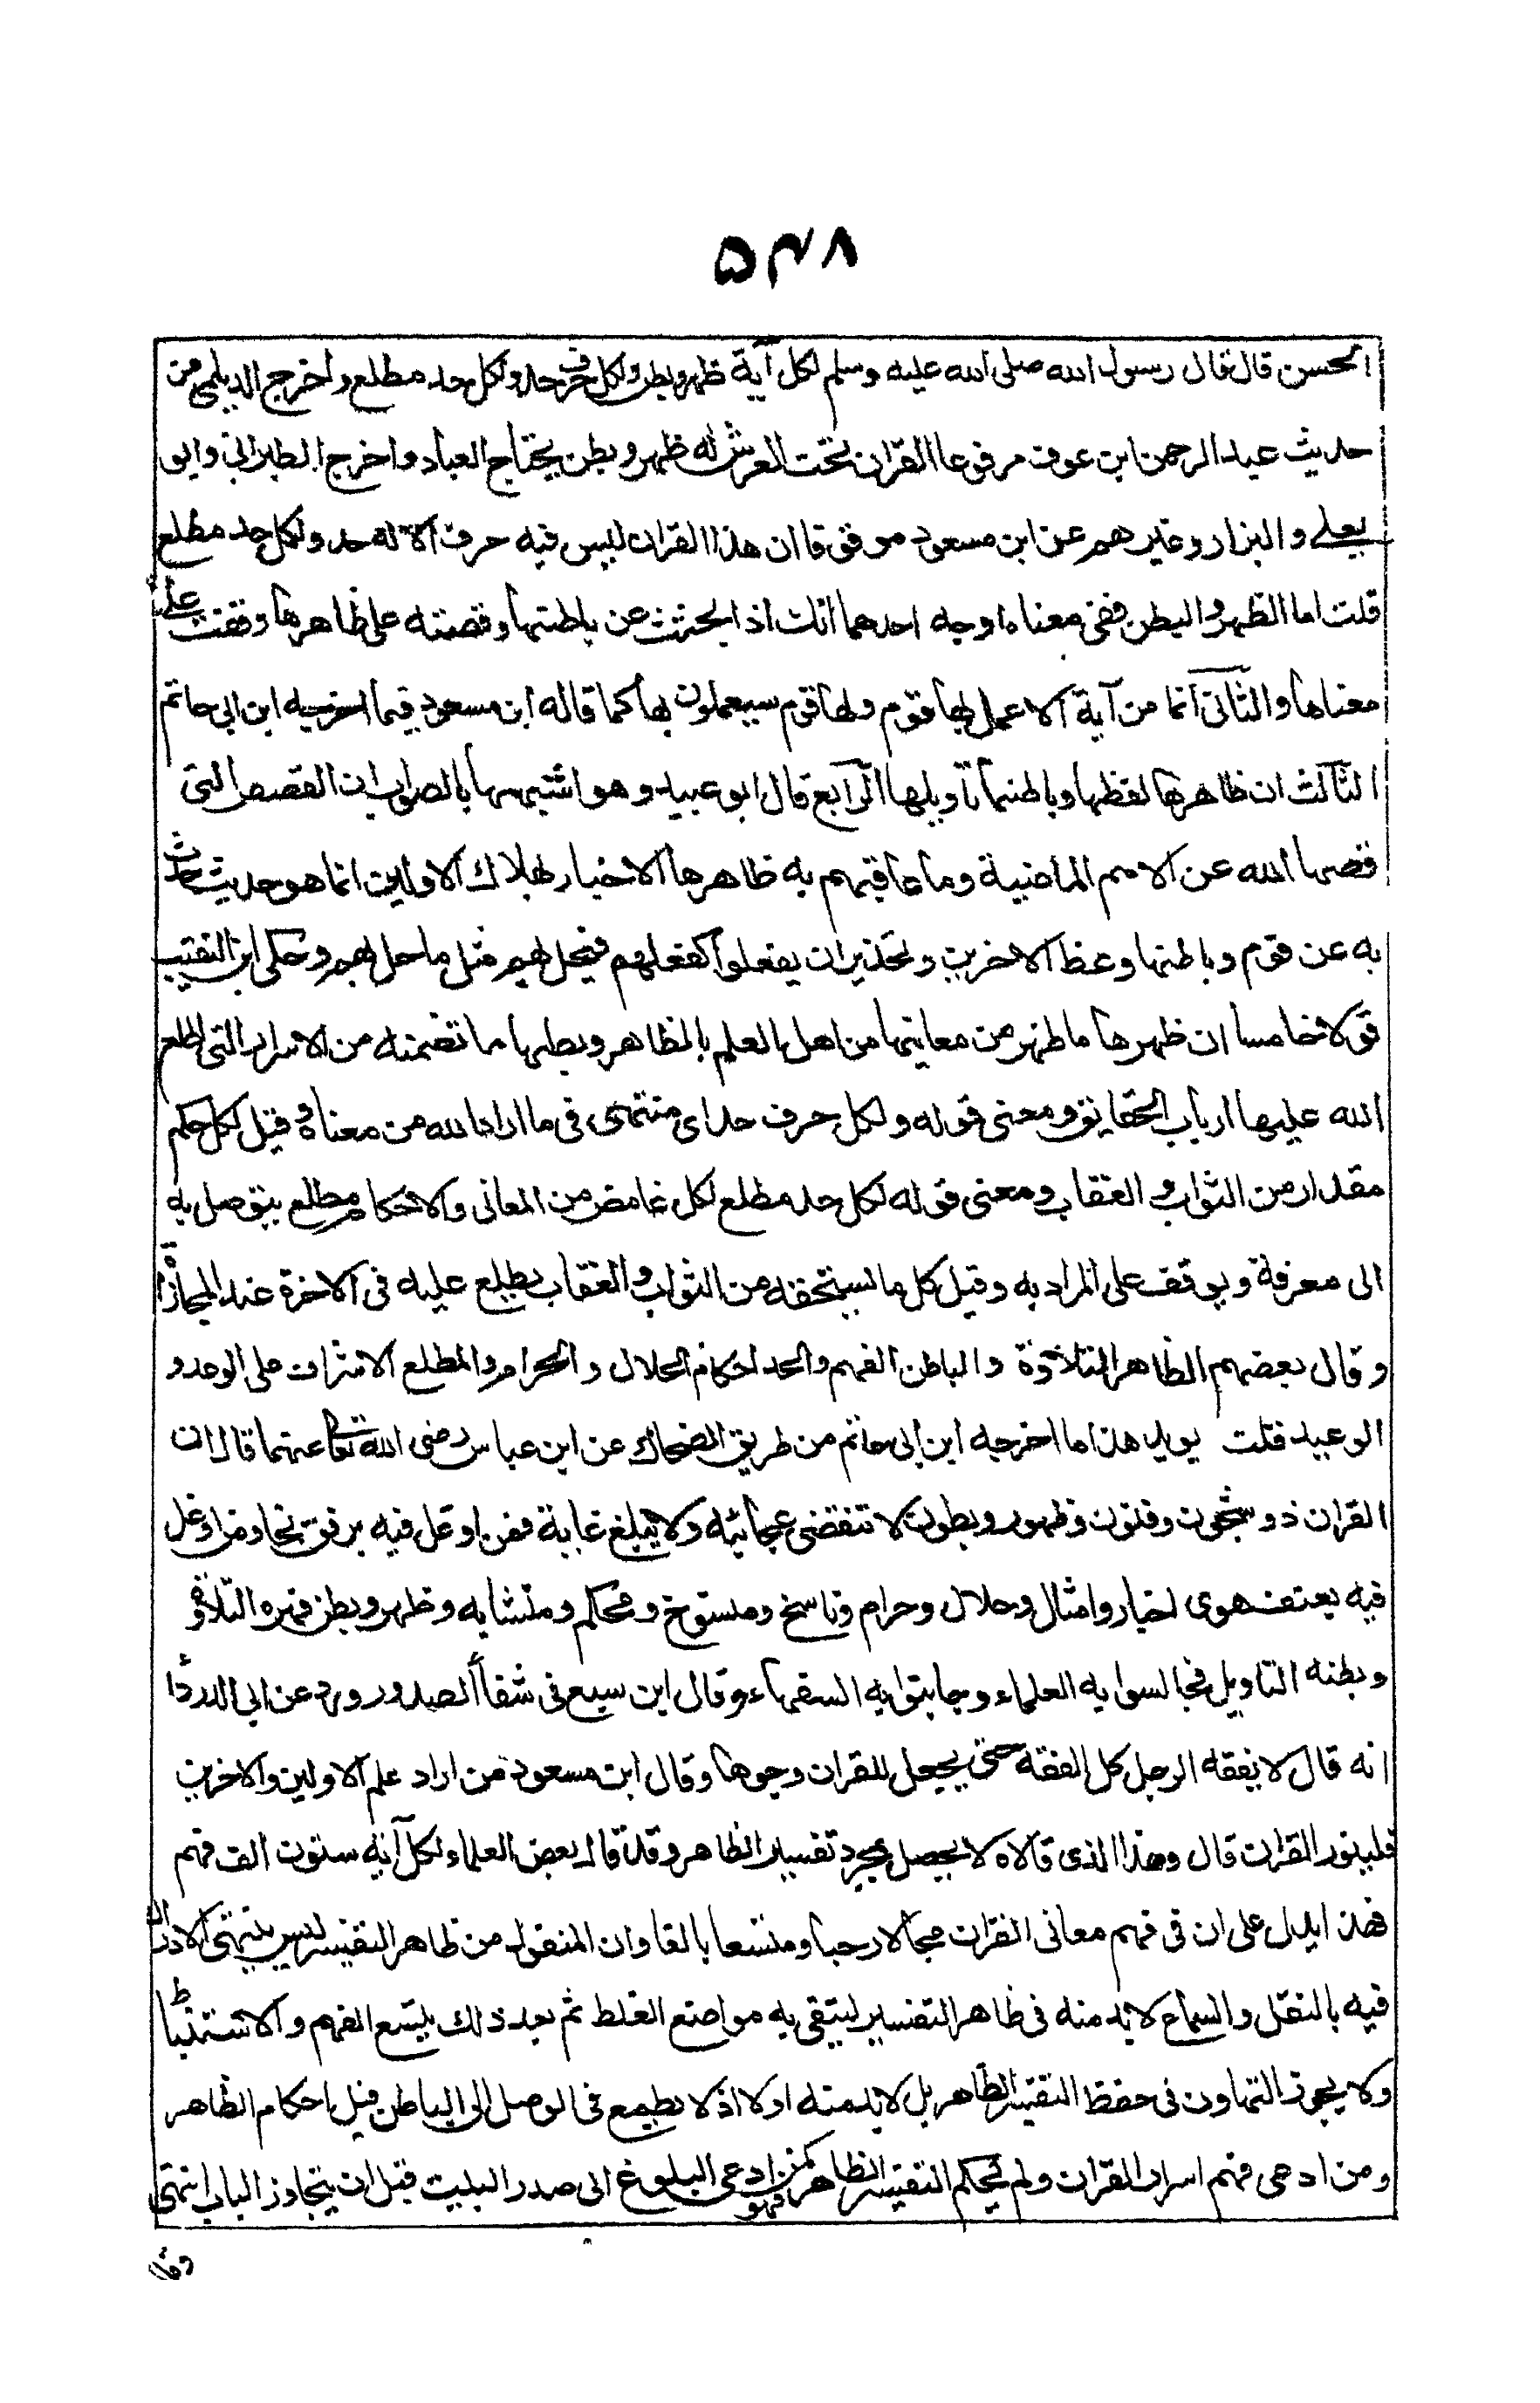 ۵۴۸
الحسن قال قال رسول الله صلى الله عليه وسلم لكل آية ظهر وبطن ولكل حرف حد ولكل حد مطلع واخرج الديلمى من
حديث عبد الرحمن ابن عوف مرفوعا القران تحت العرش له ظهر و بطن يحتاج العباد واخرج الطبرانى وابو
يعلے و البزار وغيرهم عن ابن مسعود موقوقا ان هذا القران ليس فيه حرف الا له حد ولكل حد مطلع
قلت اما الظهر والبطن ففى معناه اوجه احدهما انك اذا بحثت عن باطنها وقصته على ظاهرها وقفت على
معناها والثانى انما من آية الا عمل بها قوم ولها قوم سيعملون بها كما قاله ابن مسعود فيما اخرجه ابن ابى حاتم
الثالث ان ظاهرها لفظها وباطنها تاويلها الرابع قال ابو عبيد وهو اشبهها بالصواب ان القصص التى
قصها الله عن الامم الماضية وما عاقبهم به ظاهرها الاخبار بهلاك الاولين انما هو حديث حدث
به عن قوم وباطنها وعظ الاخرين وتحذير ان يفعلوا كفعلهم فيحل لهم مثل ما حل بهم وحكى ابن النقيب
قولا خامسا ان ظهرها ما ظهر من معانيها من اهل العلم بالظاهر وبطنها ما تضمنه من الاسرار التى اطلع
الله عليها ارباب الحقايق ومعنى قوله ولكل حرف حد اى منتهى فى ما اراد الله من معناه وقيل لكل حكم
مقدار من الثواب و العقاب ومعنى قوله لكل حد مطلع لكل غامض من المعانى والاحكام مطلع يتوصل به
الى معرفة ويوقف على المراد به وقيل كل ما يستحقه من الثواب والعقاب يطلع عليه فى الاخرة عند المجازاة
وقال بعضهم الظاهر التلاوة والباطن الفهم والحد احكام الحلال والحرام والمطلع الاشراف على الوعد و
الوعيد قلت يويد هذا ما اخرجه ابن ابى حاتم من طريق الضحاك عن ابن عباس رضى الله تعا عنهما قال ان
القران ذو شجون وفنون وظهور وبطون لا تنقضى عجائبه ولا يبلغ غاية فمن اوغل فيه برفق نجا ومن اوغل
فيه بعنف هوى اخبار وامثال وحلال وحرام وناسخ ومنسوخ ومحكم ومتشابه وظهر وبطن فهره التلاوة
وبطنه التاويل فجالسوا به العلماء وجانبوا به السفهاء وقال ابن سبع فى شفاأ الصدور ورد عن ابى الدردأا
انه قال لا يفقه الرجل كل الفقه حتى يجعل للقران وجوها وقال ابن مسعود من اراد علم الاولين والاخرين
فليثور القران قال وهذا الذى قالاه لا يحصل بمجرد تفسير الظاهر وقد قال بعض العلماء لكل آية ستون الف فهم
فهذا يدل على ان فى فهم معانى القران مجالا رحبا ومتسعا بالغا وان المنقول من ظاهر التفيسر ليس ينتهى الادراك
فيه بالنقل والسماع لا بد منه فى ظاهر التفسير ليتقى به مواضع الغلط ثم بعد ذلك يتسع الفهم والاستنباط
ولا يجوز التهاون فى حفظ التفيسر الظاهر بل لا بد منه اولا اذ لا يطمع فى الوصل الى الباطن قبل احكام الظاهر
ومن ادعى فهم اسرار القران ولم يحكم التفيسر الظاهر فهو كمن ادعى البلوغ الى صدر البيت قبل ان يتجاوز الباب انتهى